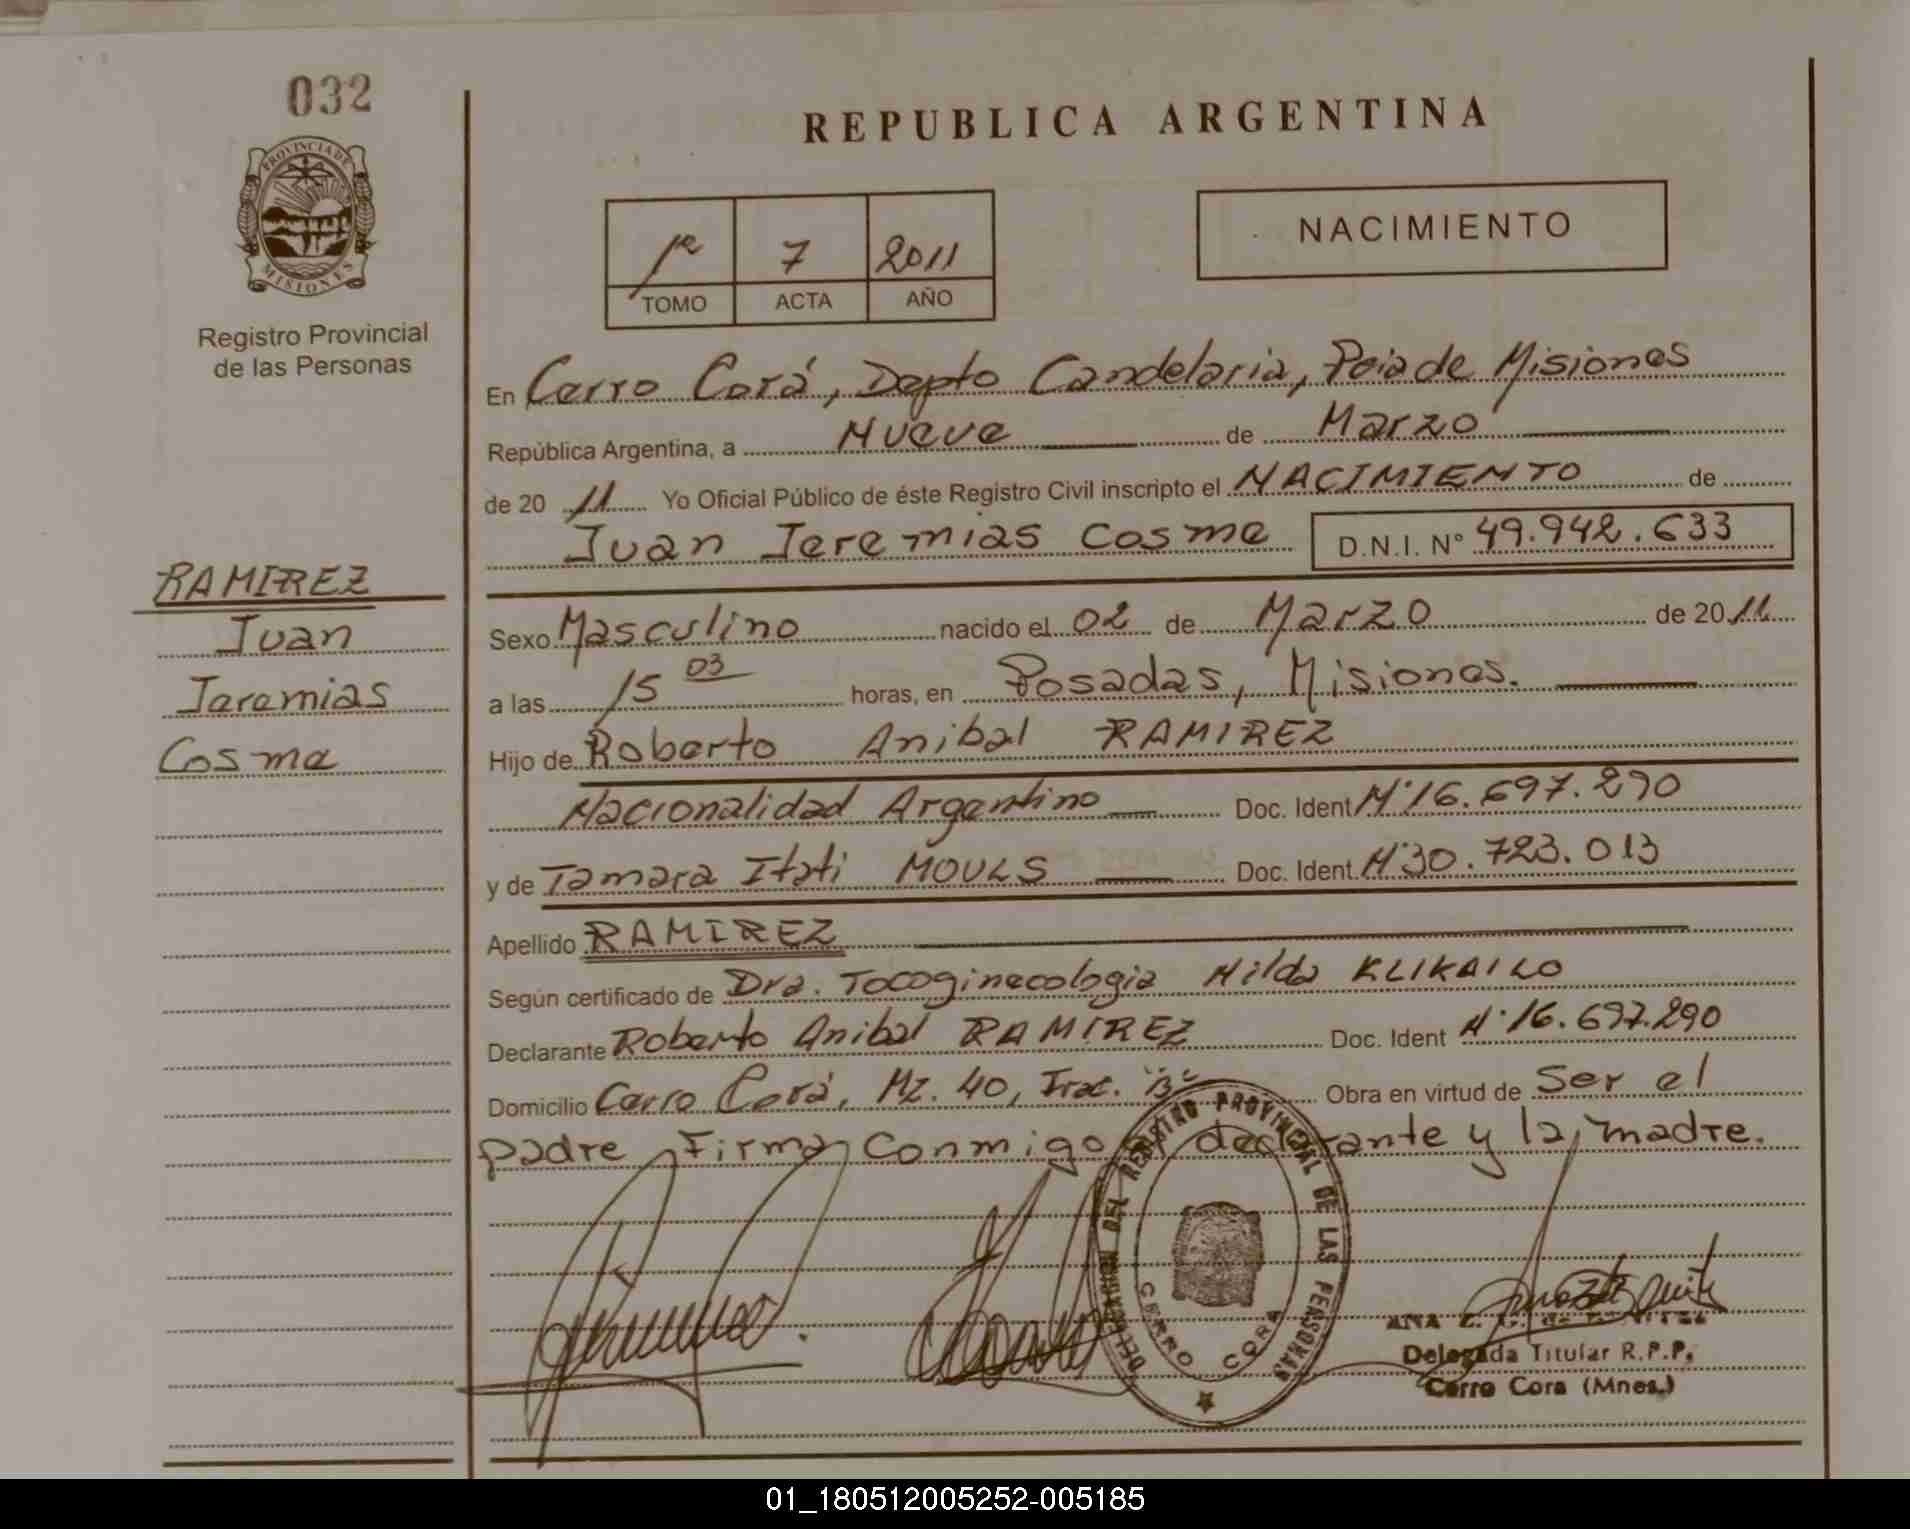 032
REPUBLICA ARGENTINA
PROVINCIA DE
MISIONES
Registro Provincial
de las Personas
1º 7 2011
TOMO ACTA AÑO
NACIMIENTO
En Cerro Corá, Depto Candelaria, Pcia de Misiones
República Argentina, a Nueve de Marzo
de 2011 Yo Oficial Público de éste Registro Civil inscripto el NACIMIENTO de
Juan Jeremias Cosme D.N.I. Nº 49.942.633
RAMIREZ
Juan
Jeremias
Cosme
Sexo Masculino nacido el 02 de Marzo de 2011
a las 15 03 horas, en Posadas, Misiones.
Hijo de Roberto Anibal RAMIREZ
Nacionalidad Argentino Doc. Ident Nº16.697.290
y de Tamara Itati MOULS Doc. Ident. Nº30.723.013
Apellido RAMIREZ
Según certificado de Dra. Tocoginecologia Hilda KLIKAILO
Declarante Roberto Anibal RAMIREZ Doc. Ident Nº16.697.290
Domicilio Cerro Corá, Mz. 40, Frac. "B" Obra en virtud de Ser el
padre Firma Conmigo declarante y la madre.
DELEGACION DEL REGISTRO PROVINCIAL DE LAS PERSONAS
CERRO CORA
ANA
Delegada Titular R.P.P.
Cerro Cora (Mnes.)
01_180512005252-005185